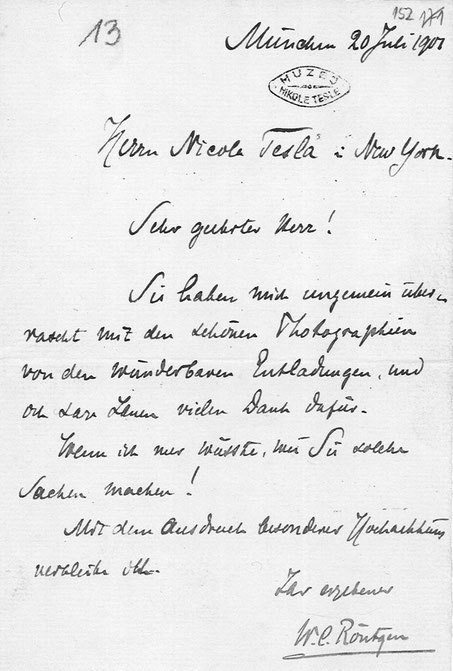 13
152 171
München 20 Juli 1901
MUZEJ
NIKOLE TESLE
Herrn Nicola Tesla i New York.
Sehr geehrter Herr!
Sie haben mich ungemein über-
rascht mit den schönen Photographien
von den wunderbaren Entladungen, und
ich sage Ihnen vielen Dank dafür.
Wenn ich nur wüsste, wie Sie solche
Sachen machen!
Mit dem Ausdruck besonderer Hochachtung
verbleibe ich
Ihr ergebener
W. C. Röntgen